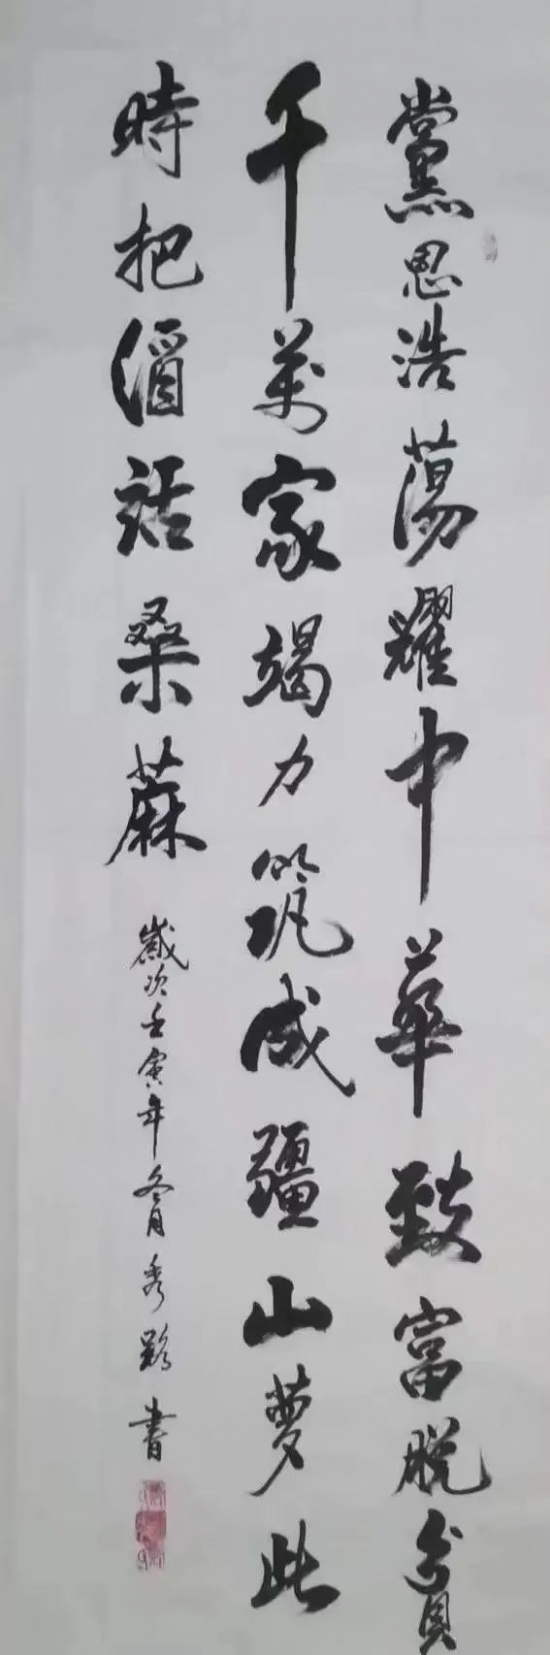 黨恩浩蕩耀中華致富脫貧
千萬家竭力筑成疆山夢此
時把酒話桑蔴
歲次壬寅年冬月秀 書